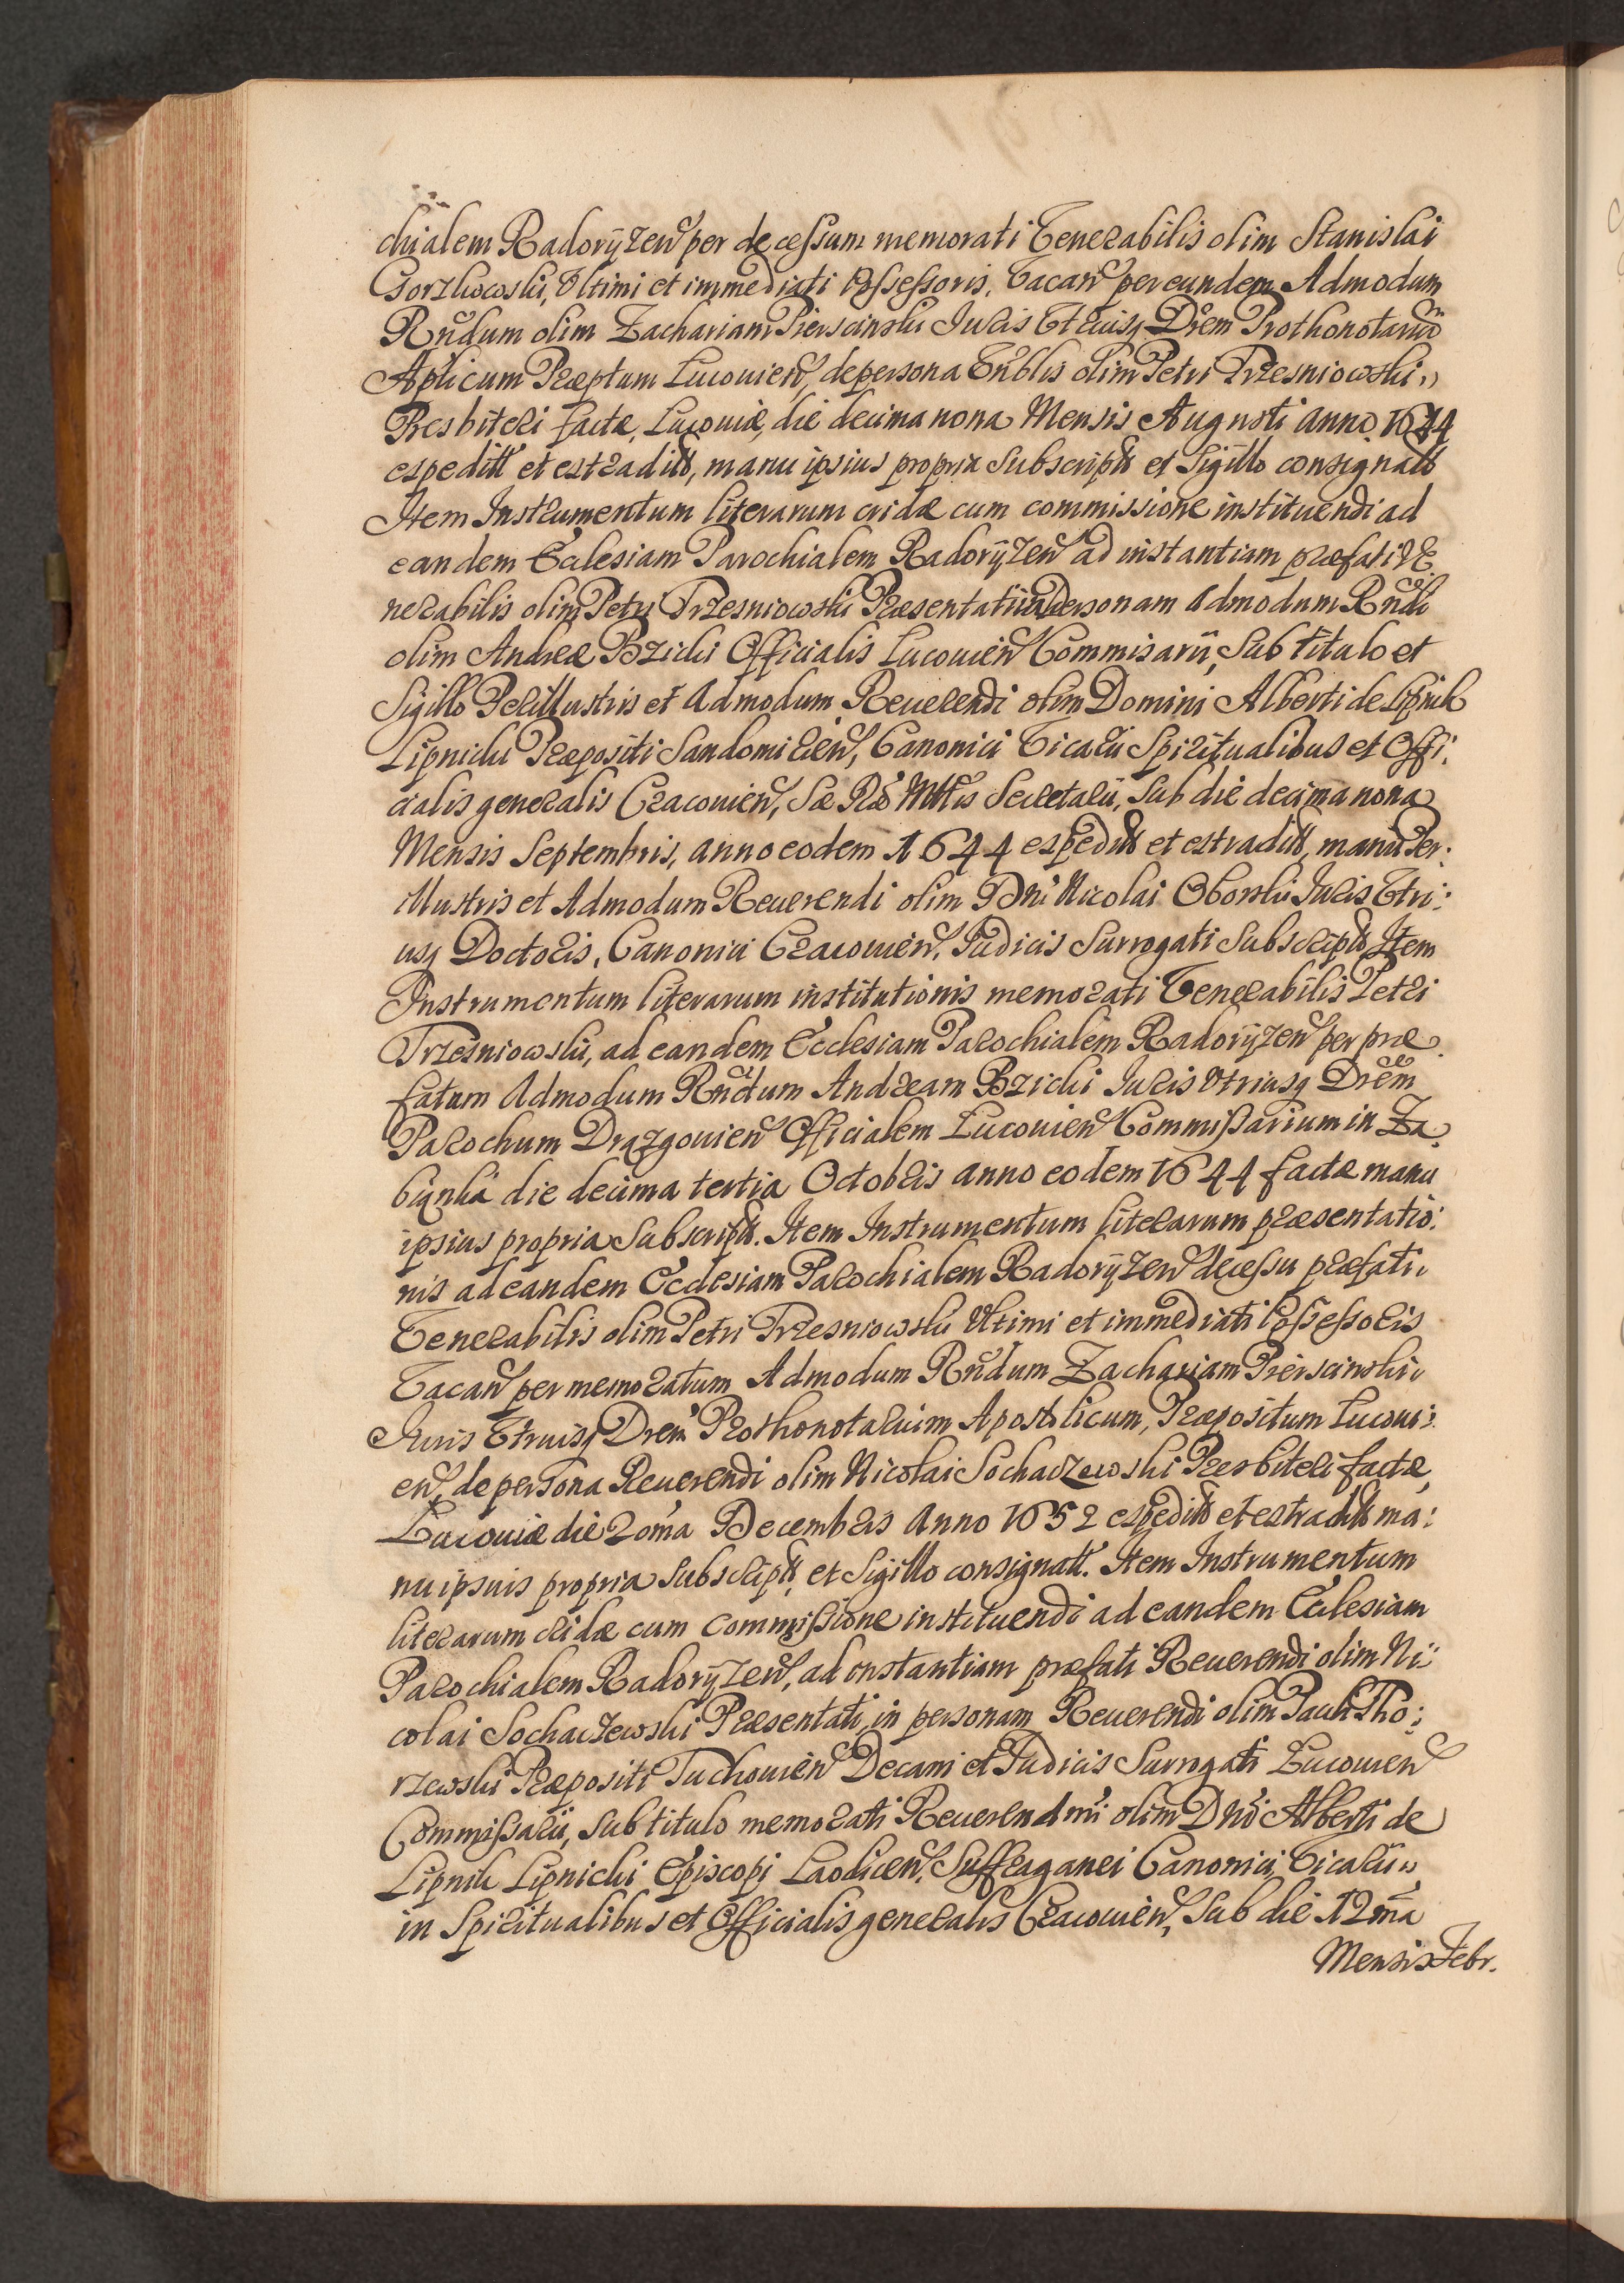 chialem Radoryzen̄ per decessum memorati Venerabilis olim Stanislai
Gorzkowski, Vltimi et immediati Possessoris. Vacan̄ per eundem Admodum
Rndum olim Zachariam Pierscinski Juris Vtriusq Drem Prothonotariū
Aplicum Præptum Lucouien̄, de persona Vnblis olim Petri Trzesniowski
Presbiteri factæ, Lucouiæ, die decima nona Mensis Augusti anno 1644
espeditt et estraditt, manu ipsius propria Subscriptt et Sigillo consignatt
Item Instrumentum literarum cridæ cum commissione instituendi ad
eandem Ecclesiam Parochialem Radoryzen̄ ad instantiam præfati Ve
nerabilis olim Petri Trzesniowski Præsentati in Personam Admodum Rndi
olim Andreæ Bzicki Officialis Lucouien̄ Commisarij, Sub titulo et
Sigillo Perillustris et Admodum Reuerendi olim Domini Alberti de Lipnik
Lipnicki Præpositi Sandomirien̄, Canonici Vicarii Spiritualibus et Offi:
cialis generalis Cracouien̄, Sæ Ræ Mttis Secretarii, Sub die decima nona
Mensis Septembris, anno eodem 1644 espeditt et estraditt, manu Per:
illustris et Admodum Reuerendi olim Dni Nicolai Oborski Juris Vtri:
usq Doctoris, Canonici Cracouien̄, Judicis Surrogati Subscriptt Item
Instrumentum literarum institutionis memorati Venerabilis Petri
Trzesniowski, ad eandem Ecclesiam Parochialem Radoryzen̄ per præ
fatum Admodum Rndum Andream Bzicki Juris Vtriusq Drem
Parochum Drązgouien̄ Officialem Lucouien̄ Commissarium in Za
bianka die decima tertia Octobris anno eodem 1644 factæ manu
ipsius propria Subscriptt. Item Instrumentum literarum præsentatio:
nis ad eandem Ecclesiam Parochialem Radoryzen̄ decessu præfati
Venerabilis olim Petri Trzesniowski Vltimi et immediati Possessoris
Vacan̄ per memoratum Admodum Rndum Zachariam Pierscinski
Juris Vtriusq Drem Prothonotarium Apostolicum, Præpositum Lucoui:
en̄, de persona Reuerendi olim Nicolai Sochaczewski Presbiteri factæ,
Lucouiæ die 2oma Decembris Anno 1652 espeditt et estraditt ma:
nu ipsius propria Subscriptt, et Sigillo consignatt. Item Instrumentum
literarum cridæ cum Commissione instituendi ad eandem Ecclesiam
Parochialem Radoryzen̄, ad instantiam præfati Reuerendi olim Ni:
colai Sochaczewski Præsentati, in personam Reuerendi olim Pauli Tho:
rzewski Præpositi Tuchouien̄ Decani et Judicis Surrogati Lucouien̄
Commissarii, Sub titulo memorati Reuerendmi olim Dni Alberti de
Lipnik Lipnicki Episcopi Laodicen̄, Suffraganei Canonici, Vicarii
in Spiritualibus et Officialis generalis Cracouien̄, Sub die 12ma
Mensis Febr.